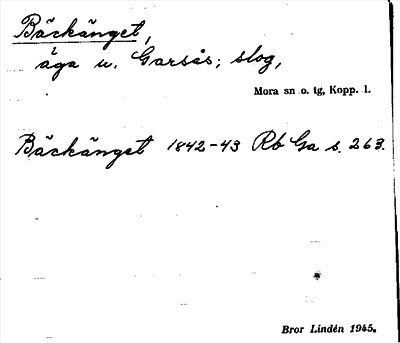 Bäckänget,
äga u. Garsås; slog,
Mora sn o. tg, Kopp. l.
Bäckänget 1842-43 Rb Ga s. 263.
Bror Lindén 1945.